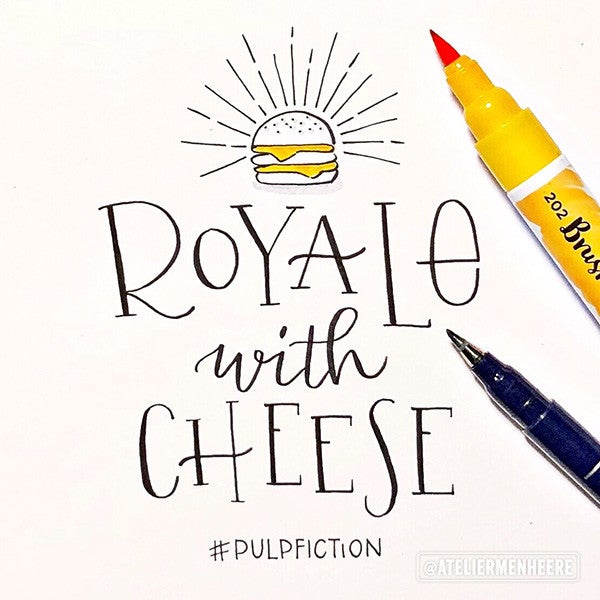 ROYALe
with
CHEESE
#PULPFICTiON
202 Brush
@ATELIERMENHEERE